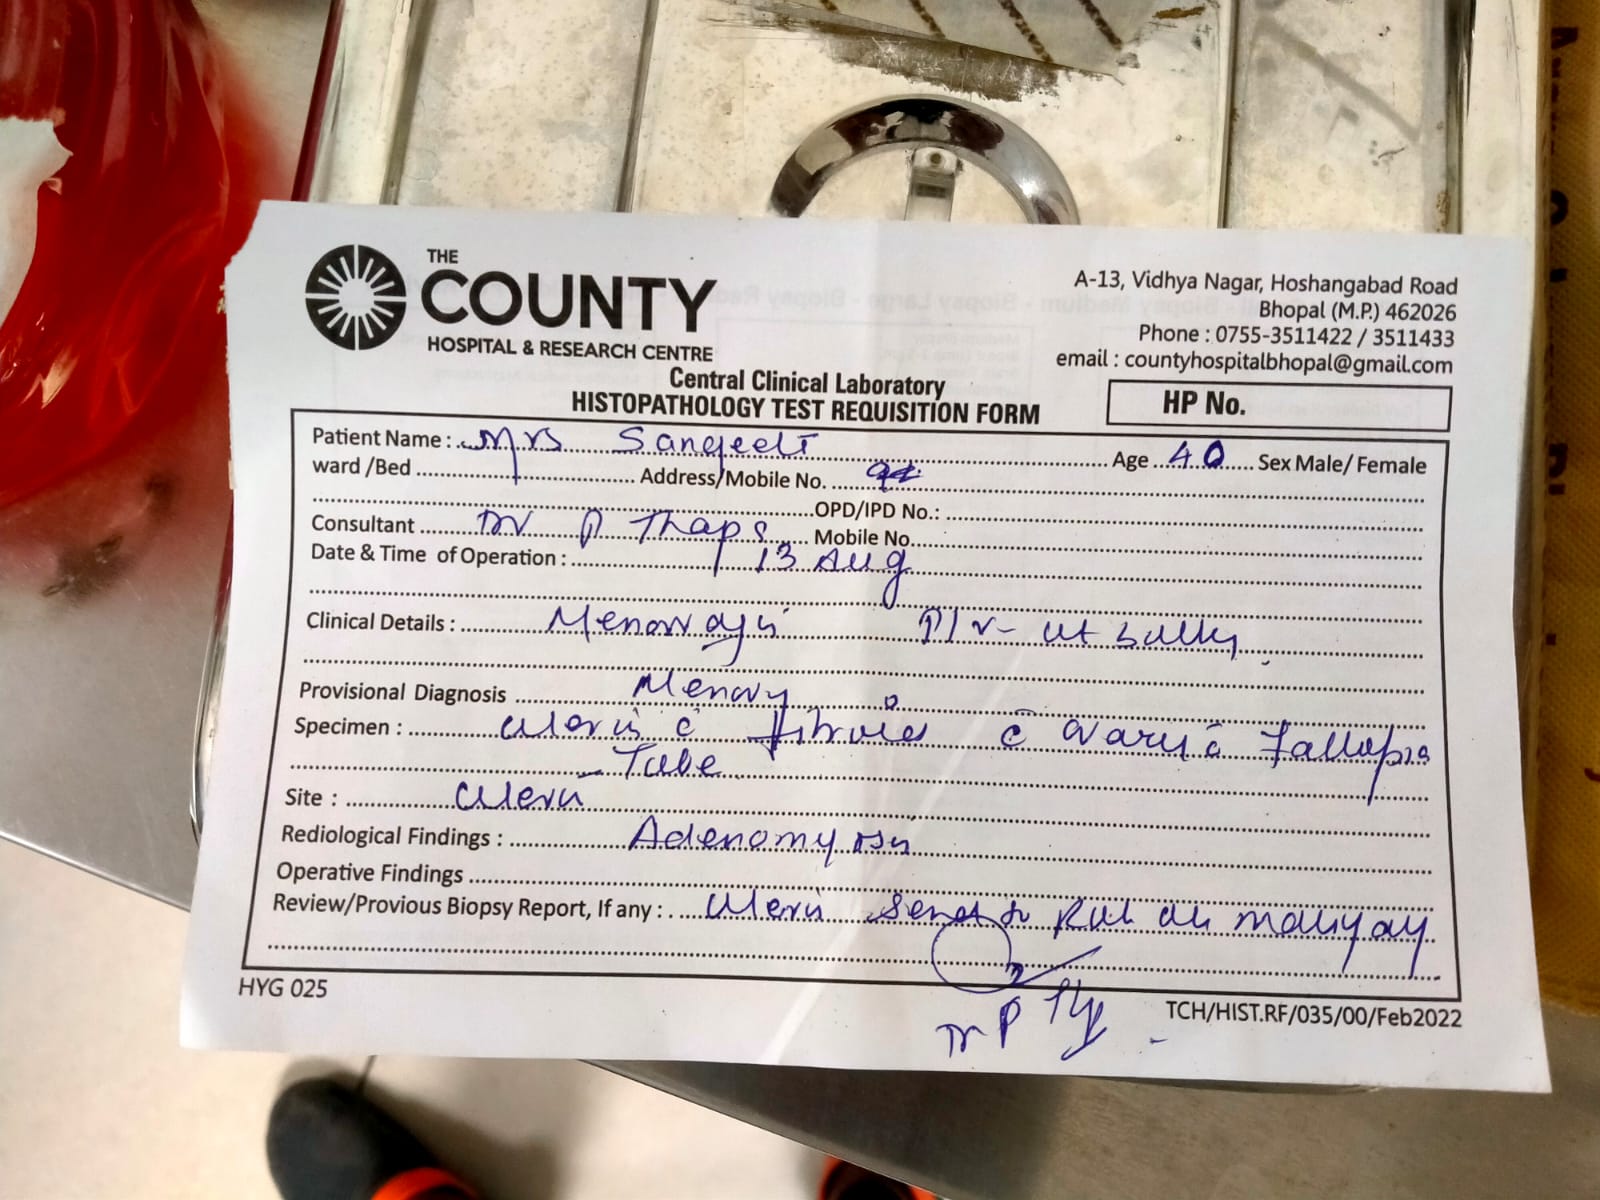 THE
COUNTY
HOSPITAL & RESEARCH CENTRE
A-13, Vidhya Nagar, Hoshangabad Road
Bhopal (M.P.) 462026
Phone : 0755-3511422 / 3511433
email : countyhospitalbhopal@gmail.com
Central Clinical Laboratory
HISTOPATHOLOGY TEST REQUISITION FORM
HP No.
Patient Name : Mrs Sangeeta Age 40 Sex Male/ Female
ward /Bed Address/Mobile No.
OPD/IPD No.:
Consultant Dr P Thapa Mobile No.
Date & Time of Operation : 13 Aug
Clinical Details : P/v- ut bulky
Provisional Diagnosis
Specimen : c c Ovary c
Tube
Site :
Rediological Findings : Adenomyosis
Operative Findings
Review/Provious Biopsy Report, If any :
Dr P
HYG 025
TCH/HIST.RF/035/00/Feb2022